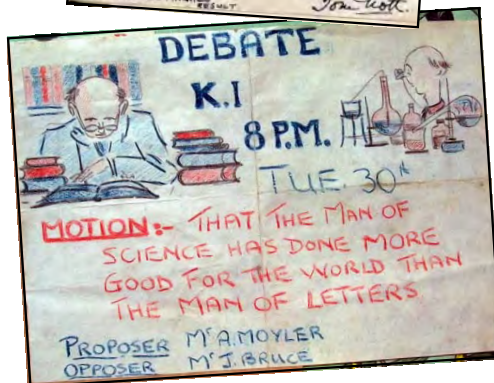 RESULT.
DEBATE
K.I
8 P.M.
TUE. 30th
MOTION:- THAT THE MAN OF
SCIENCE HAS DONE MORE
GOOD FOR THE WORLD THAN
THE MAN OF LETTERS
PROPOSER Mr A. MOYLER
OPPOSER Mr J. BRUCE